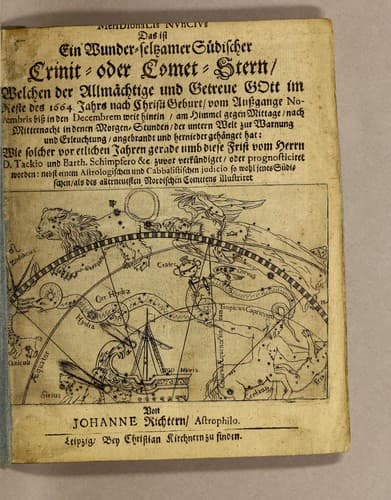 Meridionalis Nuncius
Das ist
Ein Wunder-seltzamer Südischer
Crinit- oder Comet-Stern/
Welchen der Allmächtige und Getreue GOtt im
Reste des 1664. Jahrs nach Christi Geburt/ vom Außgange No-
vembris biß in den Decembrem weit hinein/ am Himmel gegen Mittage/ nach
Mitternacht in denen Morgen-Stunden/ der untern Welt zur Warnung
und Erleuchtung/ angebrandt und hernieder gehänget hat:
Wie solcher vor etlichen Jahren gerade umb diese Frist vom Herrn
D. Tackio und Barth. Schimpfero &c. zuvor verkündiget/ oder prognosticiret
worden: nebst einem Astrologischen und Cabbalistischen judicio so wohl jenes Südi-
schen/ als des allerneuesten Nordischen Cometens illustriret
Crater
Corvus
Cor Hydræ
Hydra
Tropicus Capricorni
Æquator
Canicul
Sirius
Von
JOHANNE Richtern/ Astrophilo.
Leipzig/ Bey Christian Kirchnern zu finden.